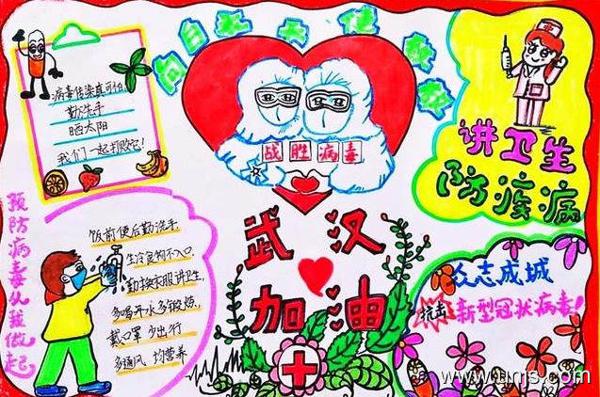 向白衣天使致敬
病毒传染真可怕
勤洗手
晒太阳
我们一起打败它!
战胜病毒
讲卫生
防疫病
预防病毒从我做起
饭前便后勤洗手,
生冷食物不入口,
勤换衣服讲卫生,
多喝开水多锻炼,
戴口罩 少出行
多通风 均营养
武汉
加油
众志成城
抗击
新型冠状病毒!